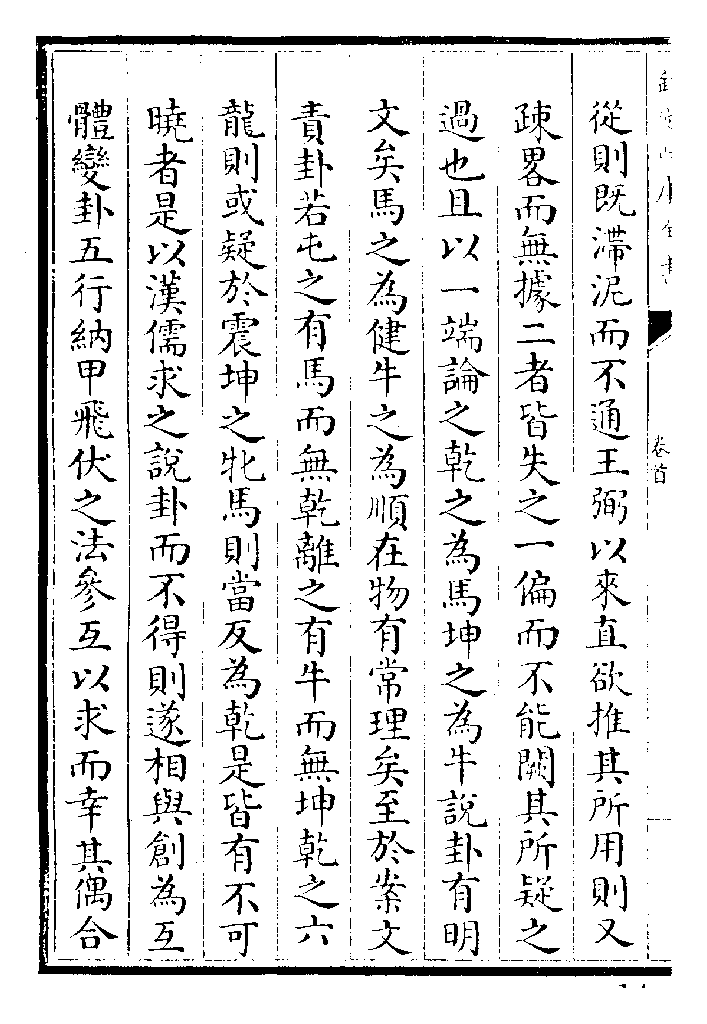 從則既滯泥而不通王弼以來直欲推其所用則又
疎畧而無據二者皆失之一偏而不能闕其所疑之
過也且以一端論之乾之為馬坤之為牛說卦有明
文矣馬之為健牛之為順在物有常理矣至於案文
責卦若屯之有馬而無乾離之有牛而無坤乾之六
龍則或疑於震坤之牝馬則當反為乾是皆有不可
曉者是以漢儒求之說卦而不得則遂相與創為互
體變卦五行納甲飛伏之法參互以求而幸其偶合
卷首